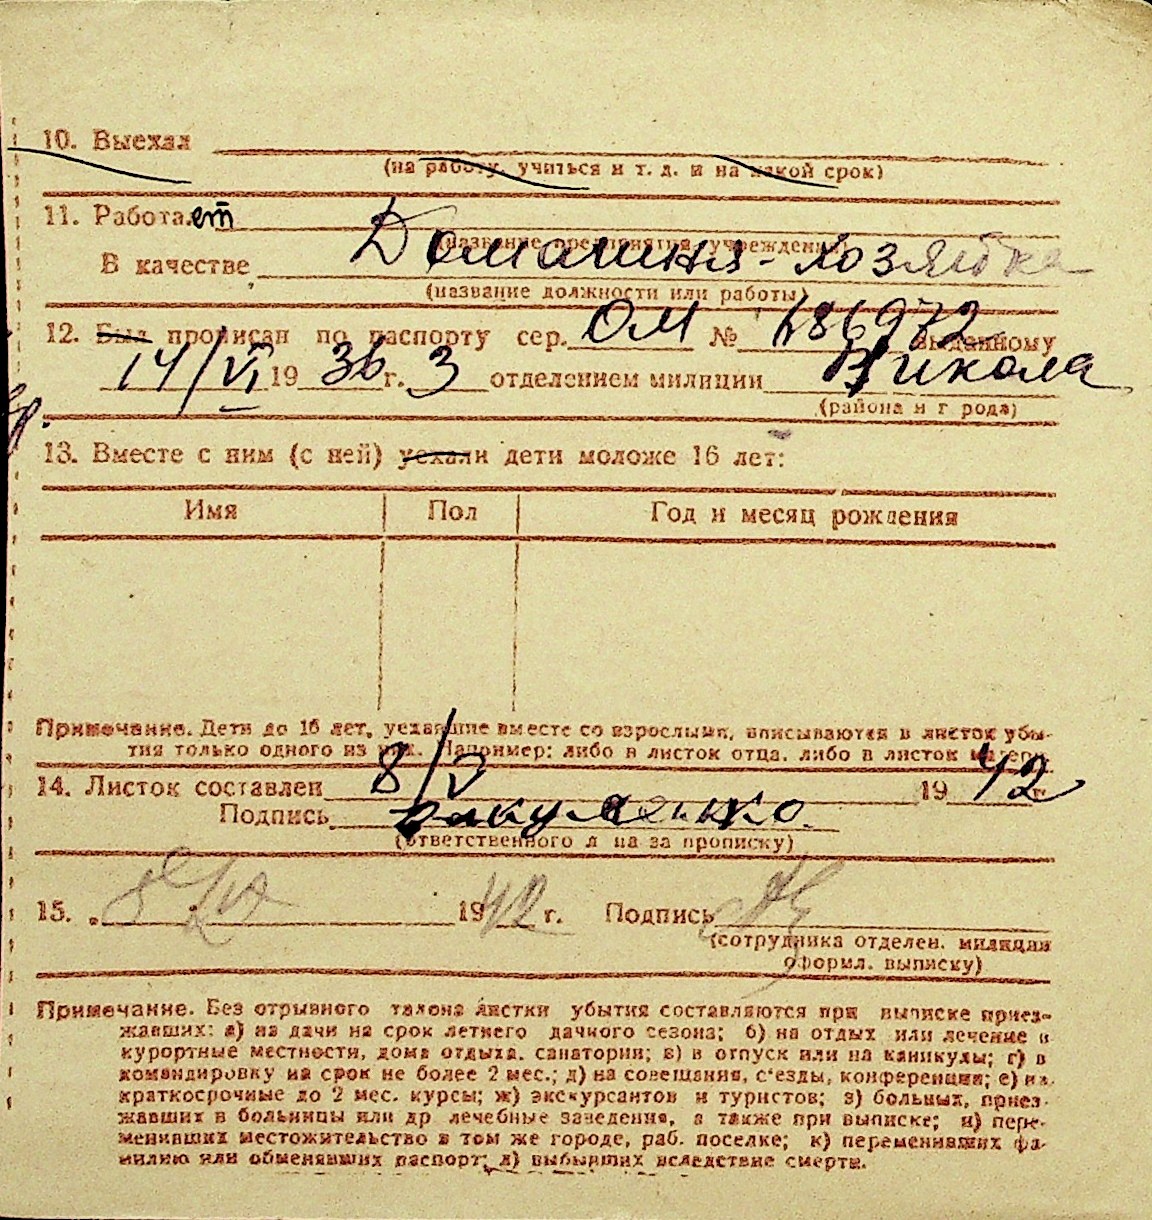 10. Выехал
(на работу, учиться и т. д. и на какой срок)
11. Работает
(название предприятия, учреждения)
В качестве Домашняя-хозяйка
(название должности или работы)
12. Был прописан по паспорту сер. ОМ № 486972 выданному
14/VI 1936 г. 3 отделением милиции
(района и города)
13. Вместе с ним (с ней) уехали дети моложе 16 лет:
Имя Пол Год и месяц рождения
Примечание. Дети до 16 лет, уехавшие вместе со взрослыми, вписываются в листок убы-
тия только одного из них. Например: либо в листок отца, либо в листок матери.
14. Листок составлен 8/V 1942 г.
Подпись
(ответственного лица за прописку)
15. 1942 г. Подпись
(сотрудника отделен. милиции
оформл. выписку)
Примечание. Без отрывного талона листки убытия составляются при выписке приез-
жавших: а) на дачи на срок летнего дачного сезона; б) на отдых или лечение в
курортные местности, дома отдыха, санатории; в) в отпуск или на каникулы; г) в
командировку на срок не более 2 мес.; д) на совещания, с'езды, конференции; е) на
краткосрочные до 2 мес. курсы; ж) экскурсантов и туристов; з) больных, приез-
жавших в больницы или др лечебные заведения, а также при выписке; и) пере-
менивших местожительство в том же городе, раб. поселке; к) переменивших фа-
милию или обменявших паспорт; л) выбывших вследствие смерти.